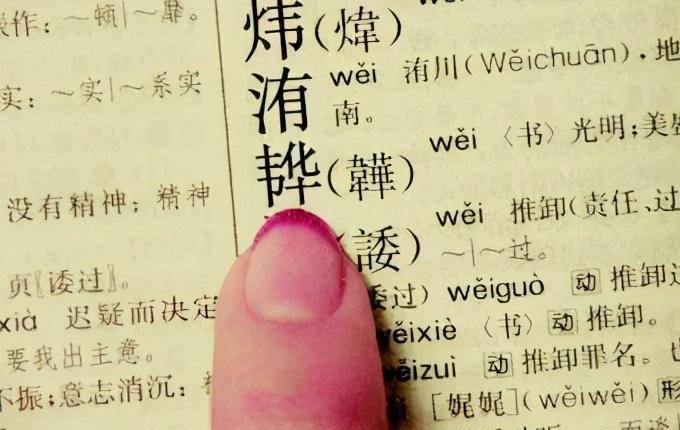 作：～顿|～靡。
实：～实|～系实
没有精神；精神
〖诿过〗。
xià 迟疑而决定
要我出主意。
不振；意志消沉：
炜(煒)
洧 wěi 洧川(Wěichuān)，地
南。
(韡) wěi 〈书〉光明；美盛
(諉) wěi 推卸(责任、过
～|～过。
诿过) wěiguò 动 推卸过
wěixiè 〈书〉 动 推卸。
wěizuì 动 推卸罪名。也
[娓娓](wěiwěi) 形